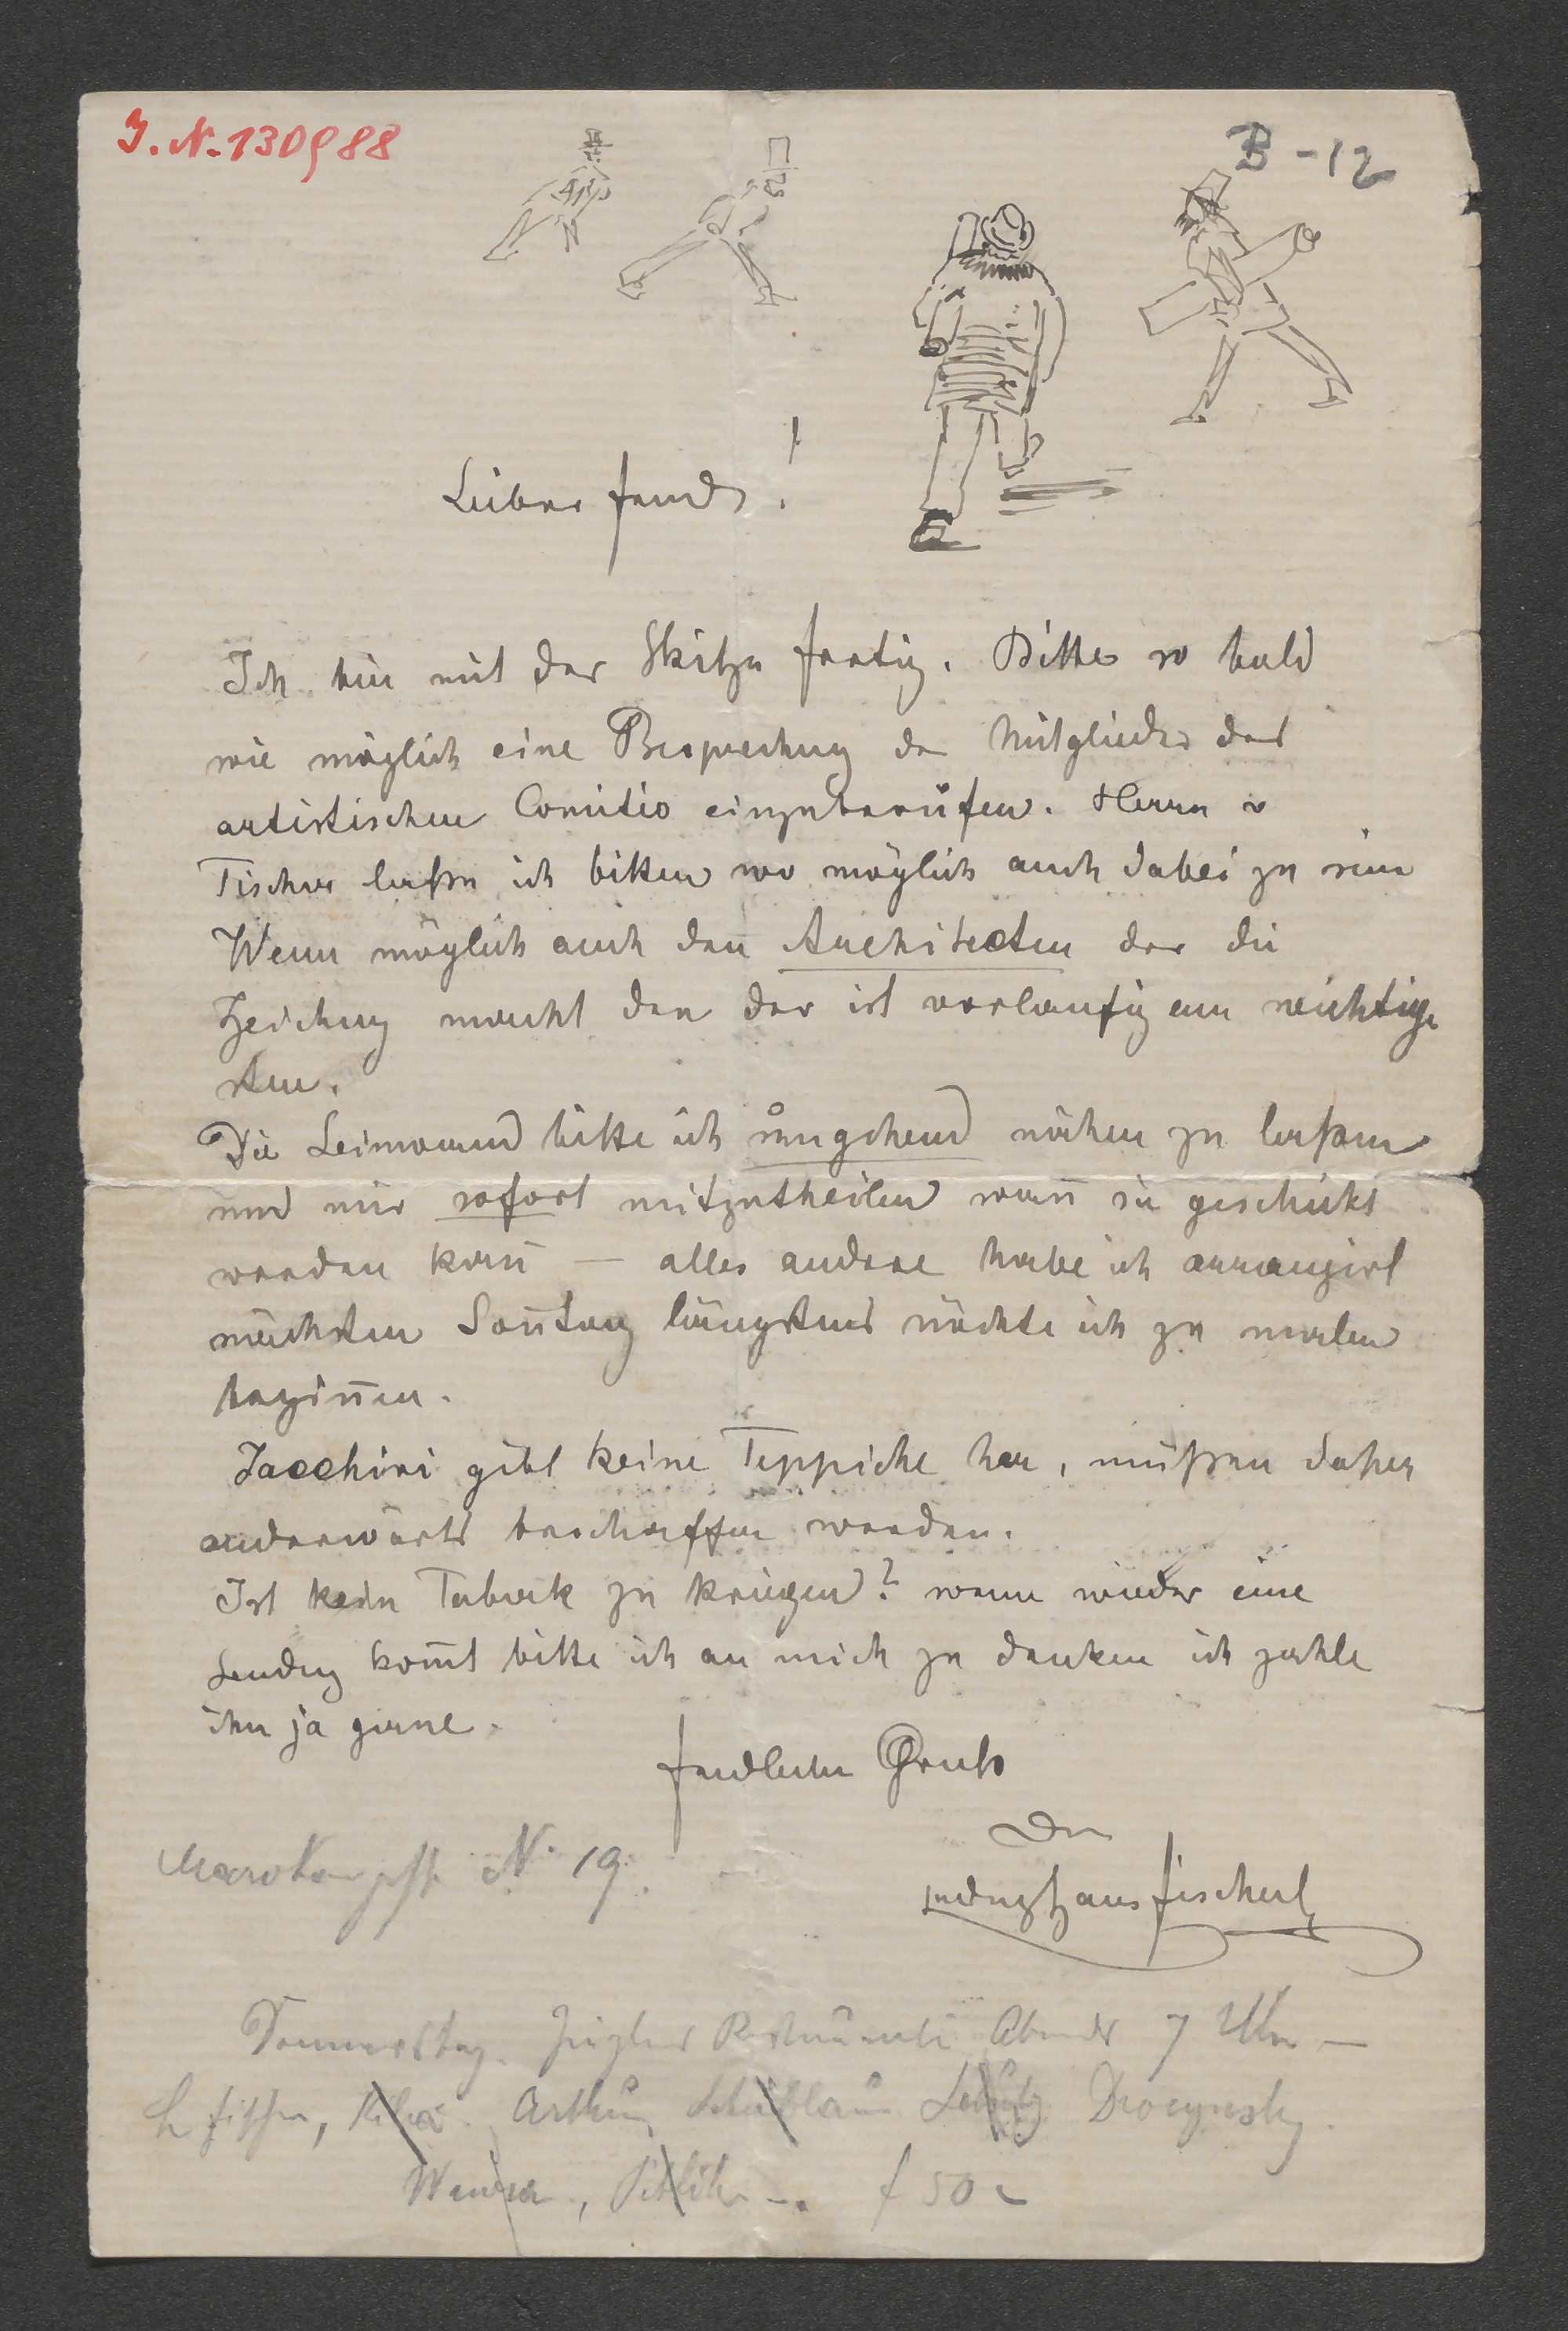 J. N. 130988
B - 12
Lieber Freund!
Ich bin mit der Skitze fertig. Bitte so bald
wie möglich eine Besprechung der Mitglieder des
artistischen Comitio einzuberufen. Herrn v
Tischer laßen ich bitten wo möglich auch dabei zu sein
Wenn möglich auch den Architecten der die
Zeichung macht den der ist vorlaufig am wichtig
sten.
Die Leinwand bitte ich umgehend nähen zu laßen
und mir sofort mitzutheilen wañ sie geschickt
werden kañ — alles andere habe ich arrangirt
nächsten Soñtag längstens möchte ich zu malen
begiñen.
Jacchini gibt keine Teppiche her, müßen daher
anderwärts beschaffen werden.
Ist kein Taback zu kriegen? wenn wieder eine
Sendug kom̄t bitte ich an mich zu denken ich zahle
ihn ja gerne.
Freundlichen Gruß
Dein
Ludwig Hans Fischer
N. 19.
Donnerstag Abends 7 Uhr —
L Fischer, Arthur
f 50